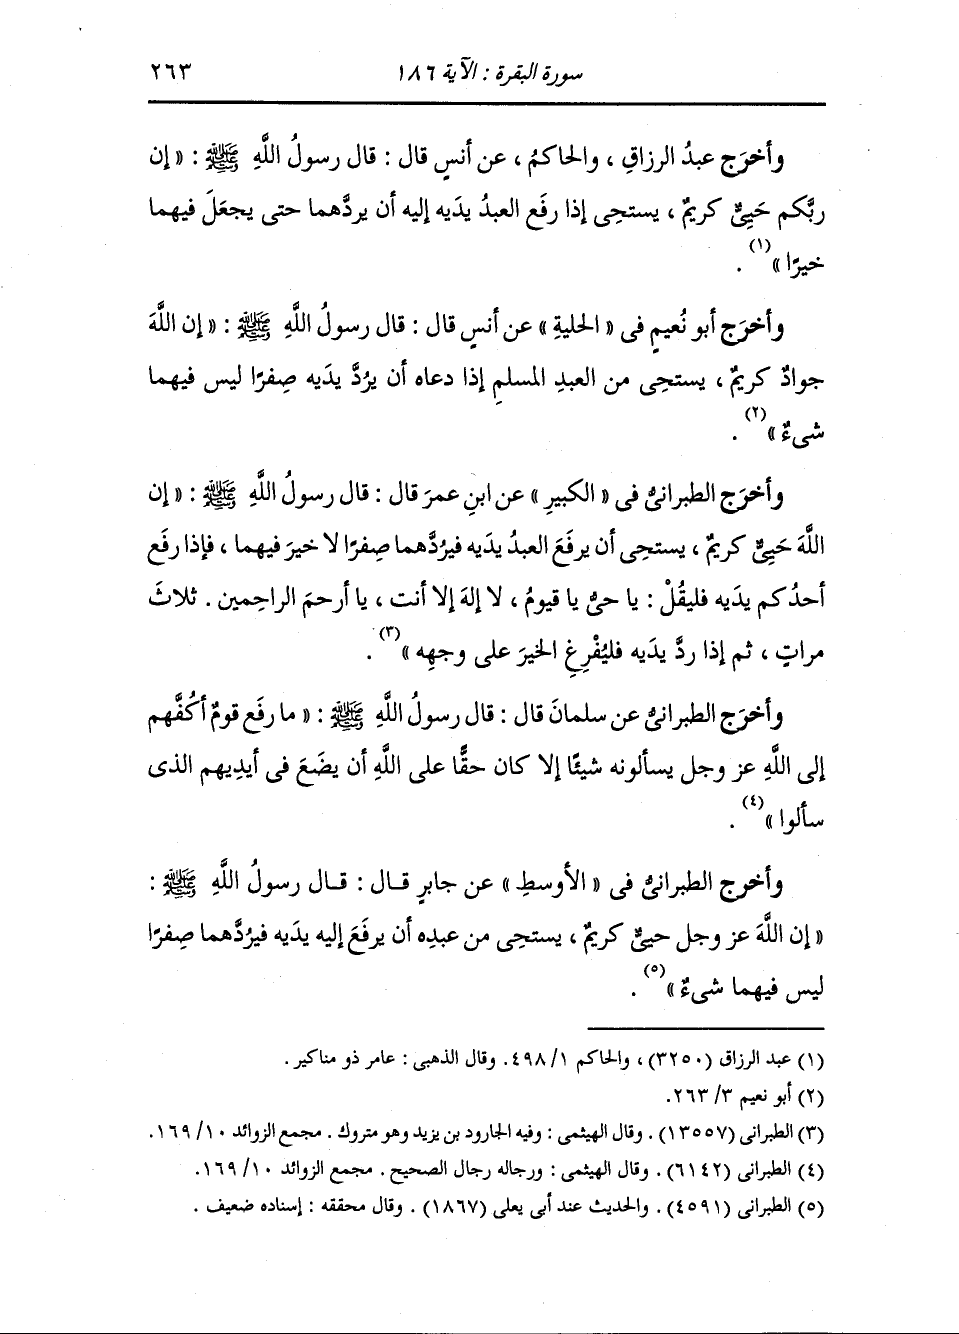 سورة البقرة : الآية ١٨٦ ٢٦٣
وأخرَج عبدُ الرزاقِ ، والحاكمُ ، عن أنسٍ قال : قال رسولُ اللَّهِ ﷺ : « إن
ربَّكم حَيِيٌّ كريمٌ ، يستحِى إذا رفَع العبدُ يدَيه إليه أن يردَّهما حتى يجعَلَ فيهما
خيرًا »(١) .
وأخرَج أبو نُعيمٍ فى « الحليةِ » عن أنسٍ قال : قال رسولُ اللَّهِ ﷺ : « إن اللَّهَ
جوادٌ كريمٌ ، يستحِى من العبدِ المسلمِ إذا دعاه أن يرُدَّ يدَيه صِفرًا ليس فيهما
شىءٌ »(٢) .
وأخرَج الطبرانىُّ فى « الكبيرِ » عن ابنِ عمرَ قال : قال رسولُ اللَّهِ ﷺ : « إن
اللَّهَ حَيِىٌّ كريمٌ ، يستحِى أن يرفَعَ العبدُ يدَيه فيرُدَّهما صِفرًا لا خيرَ فيهما ، فإذا رفَع
أحدُكم يدَيه فليقُلْ : يا حىُّ يا قيومُ ، لا إلهَ إلا أنت ، يا أرحمَ الراحِمين . ثلاثَ
مراتٍ ، ثم إذا ردَّ يدَيه فليُفْرِغِ الخيرَ على وجهِه »(٣) .
وأخرَج الطبرانىُّ عن سلمانَ قال : قال رسولُ اللَّهِ ﷺ : « ما رفَع قومٌ أكُفَّهم
إلى اللَّهِ عز وجل يسألونه شيئًا إلا كان حقًّا على اللَّهِ أن يضَعَ فى أيدِيهم الذى
سألوا »(٤) .
وأخرج الطبرانىُّ فى « الأوسطِ » عن جابرٍ قال : قال رسولُ اللَّهِ ﷺ :
« إن اللَّهَ عز وجل حيىٌّ كريمٌ ، يستحِى من عبدِه أن يرفَعَ إليه يدَيه فيرُدَّهما صِفرًا
ليس فيهما شىءٌ »(٥) .
(١) عبد الرزاق (٣٢٥٠) ، والحاكم ١/ ٤٩٨. وقال الذهبى : عامر ذو مناكير .
(٢) أبو نعيم ٣/ ٢٦٣.
(٣) الطبرانى (١٣٥٥٧) . وقال الهيثمى : وفيه الجارود بن يزيد وهو متروك . مجمع الزوائد ١٠/ ١٦٩.
(٤) الطبرانى (٦١٤٢) . وقال الهيثمى : ورجاله رجال الصحيح . مجمع الزوائد ١٠/ ١٦٩.
(٥) الطبرانى (٤٥٩١) . والحديث عند أبى يعلى (١٨٦٧) . وقال محققه : إسناده ضعيف .